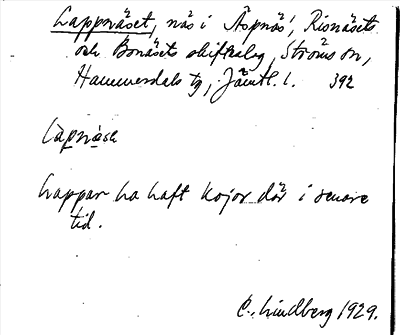 Lappnäset, näs i Äspnäs, Risnäsets
och Bonäsets skifteslag, Ströms sn,
Hammerdals tg, Jämtl. l. 392
Lapnäse
Lappar ha haft kojor där i senare
tid.
C. Lindberg 1929.